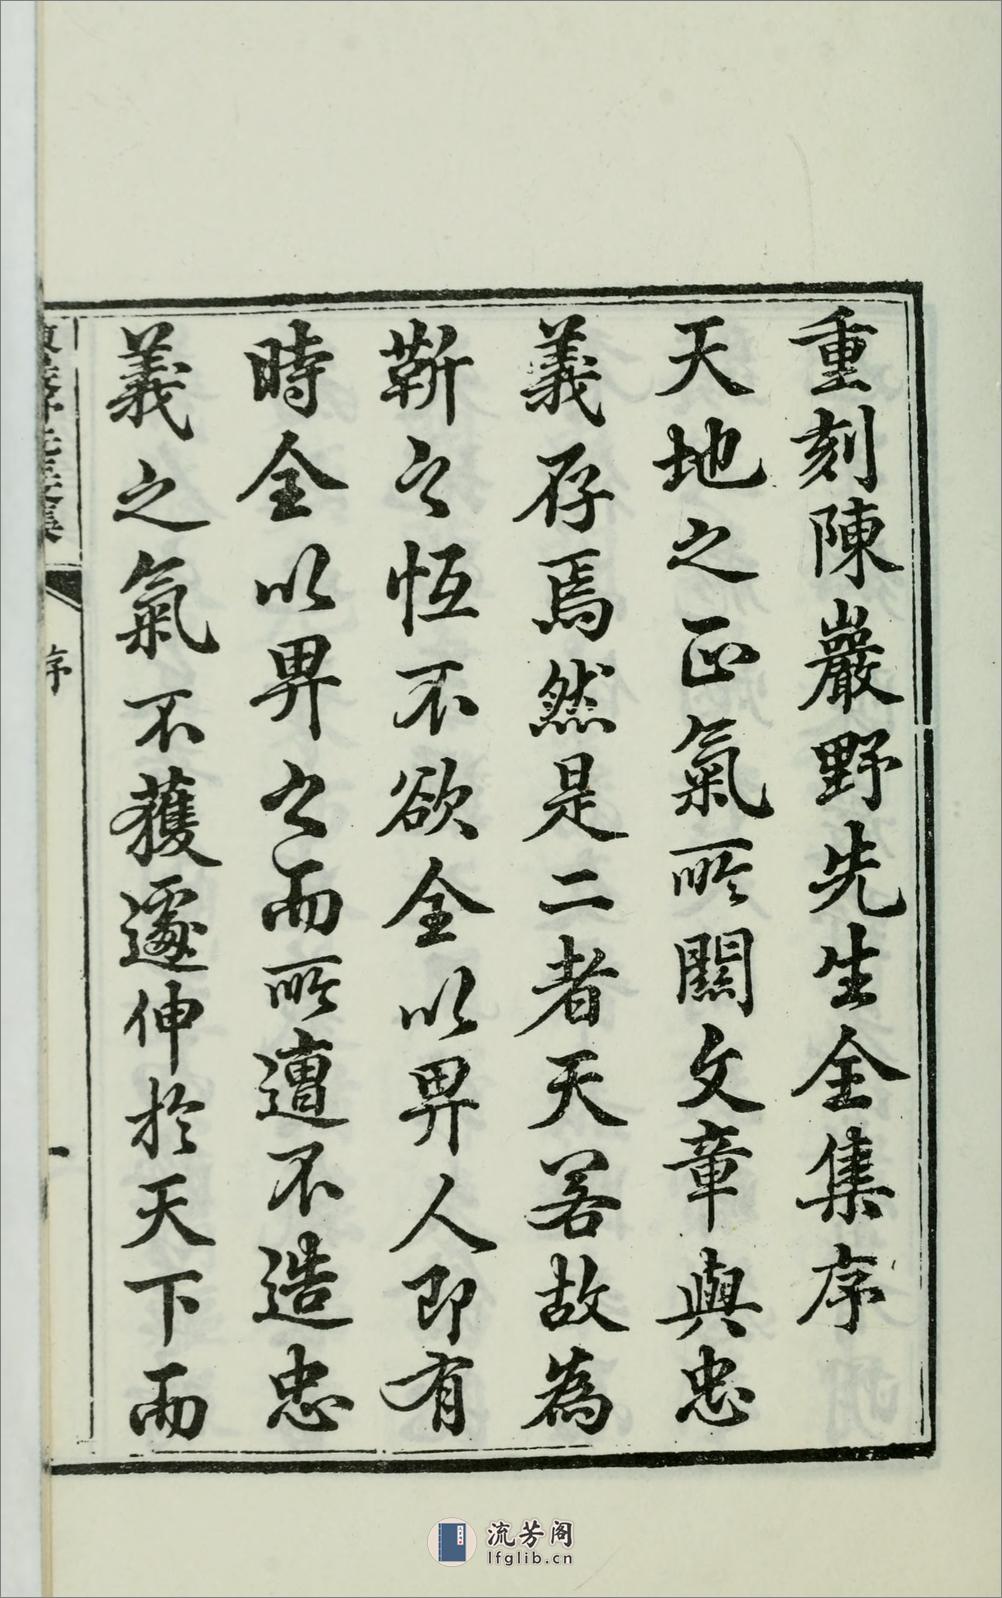 重刻陳巖野先生全集序
天地之正氣所關文章與忠
義存焉然是二者天若故為
靳之恆不欲全以畀人即有
時全以畀之而所遭不造忠
義之氣不獲遽伸於天下而
序
一
流芳阁
lfglib.cn